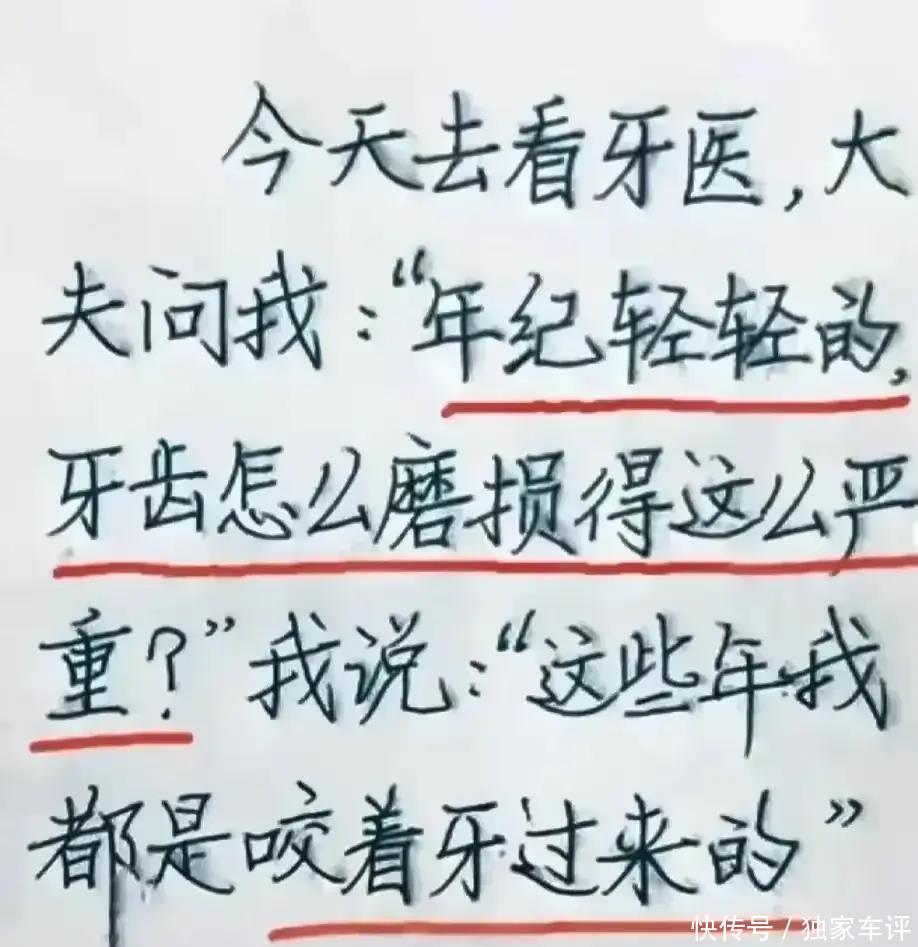 今天去看牙医,大
夫问我:“年纪轻轻的,
牙齿怎么磨损得这么严
重?”我说:“这些年我
都是咬着牙过来的”
快传号/独家车评